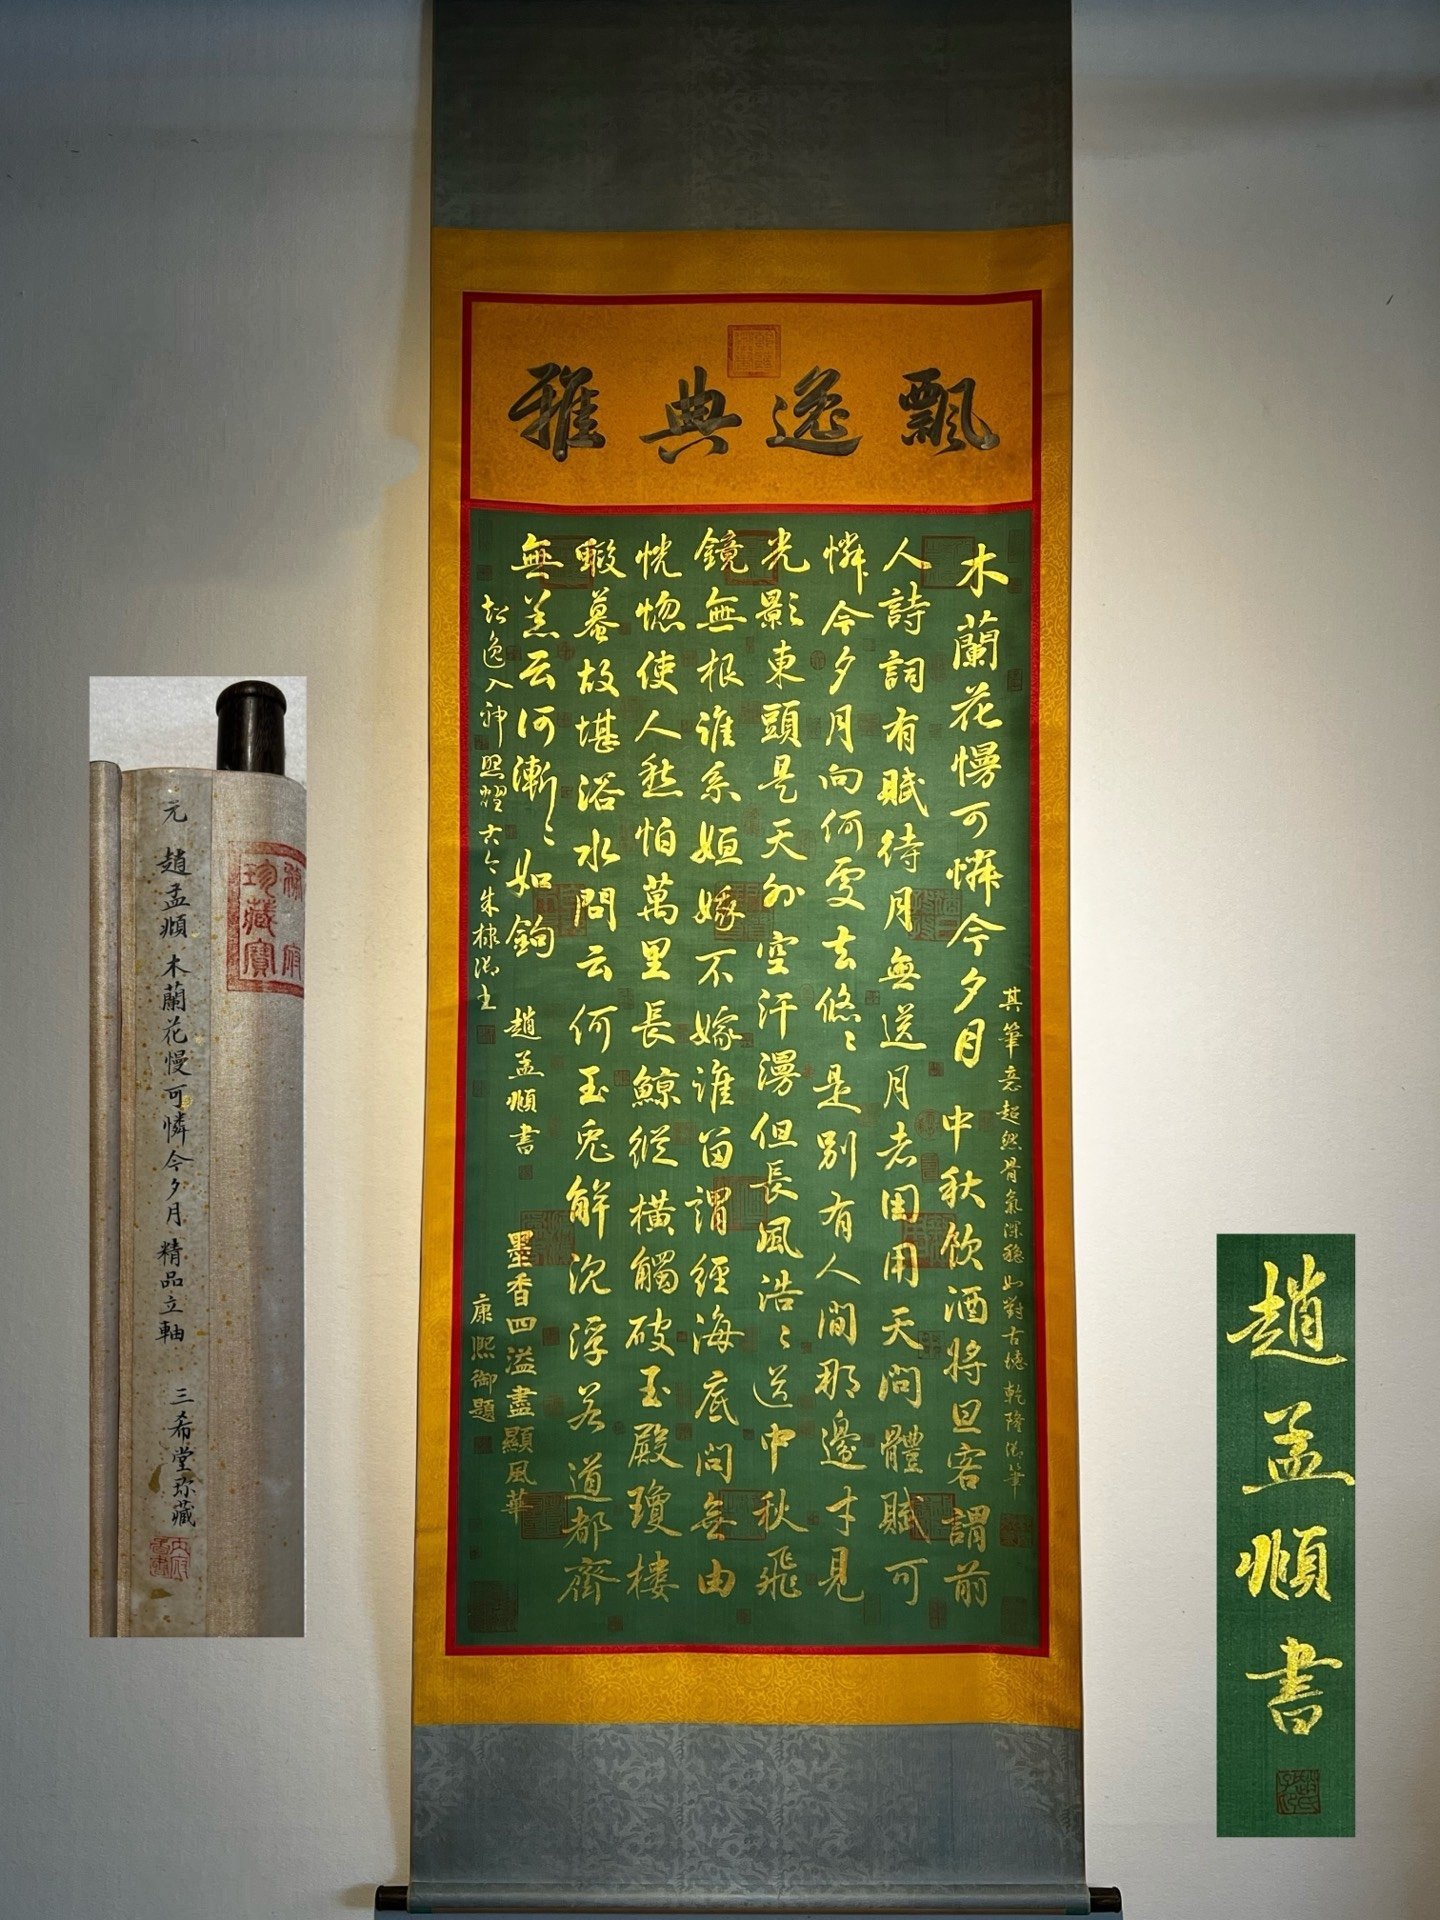 飄逸典雅
木蘭花慢可憐今夕月　中秋飲酒將旦客謂前
人詩詞有賦待月無送月者因用天問體賦可
憐今夕月向何處去悠〻是別有人間那邊才見
光影東頭是天外空汗漫但長風浩〻送中秋飛
鏡無根誰系姮娥不嫁誰留謂經海底問無由
恍惚使人愁怕萬里長鯨縱橫觸破玉殿瓊樓
蝦蟇故堪浴水問云何玉兔解沉浮若道都齊
無恙云何漸〻如鉤　趙孟頫書
墨香四溢盡顯風華
康熙御題
其筆意超然骨氣深穩如對古德乾隆御筆
超逸入神照耀古今朱棣御
元　趙孟頫　木蘭花慢可憐今夕月　精品立軸　三希堂珍藏
珍藏寶
趙孟頫書